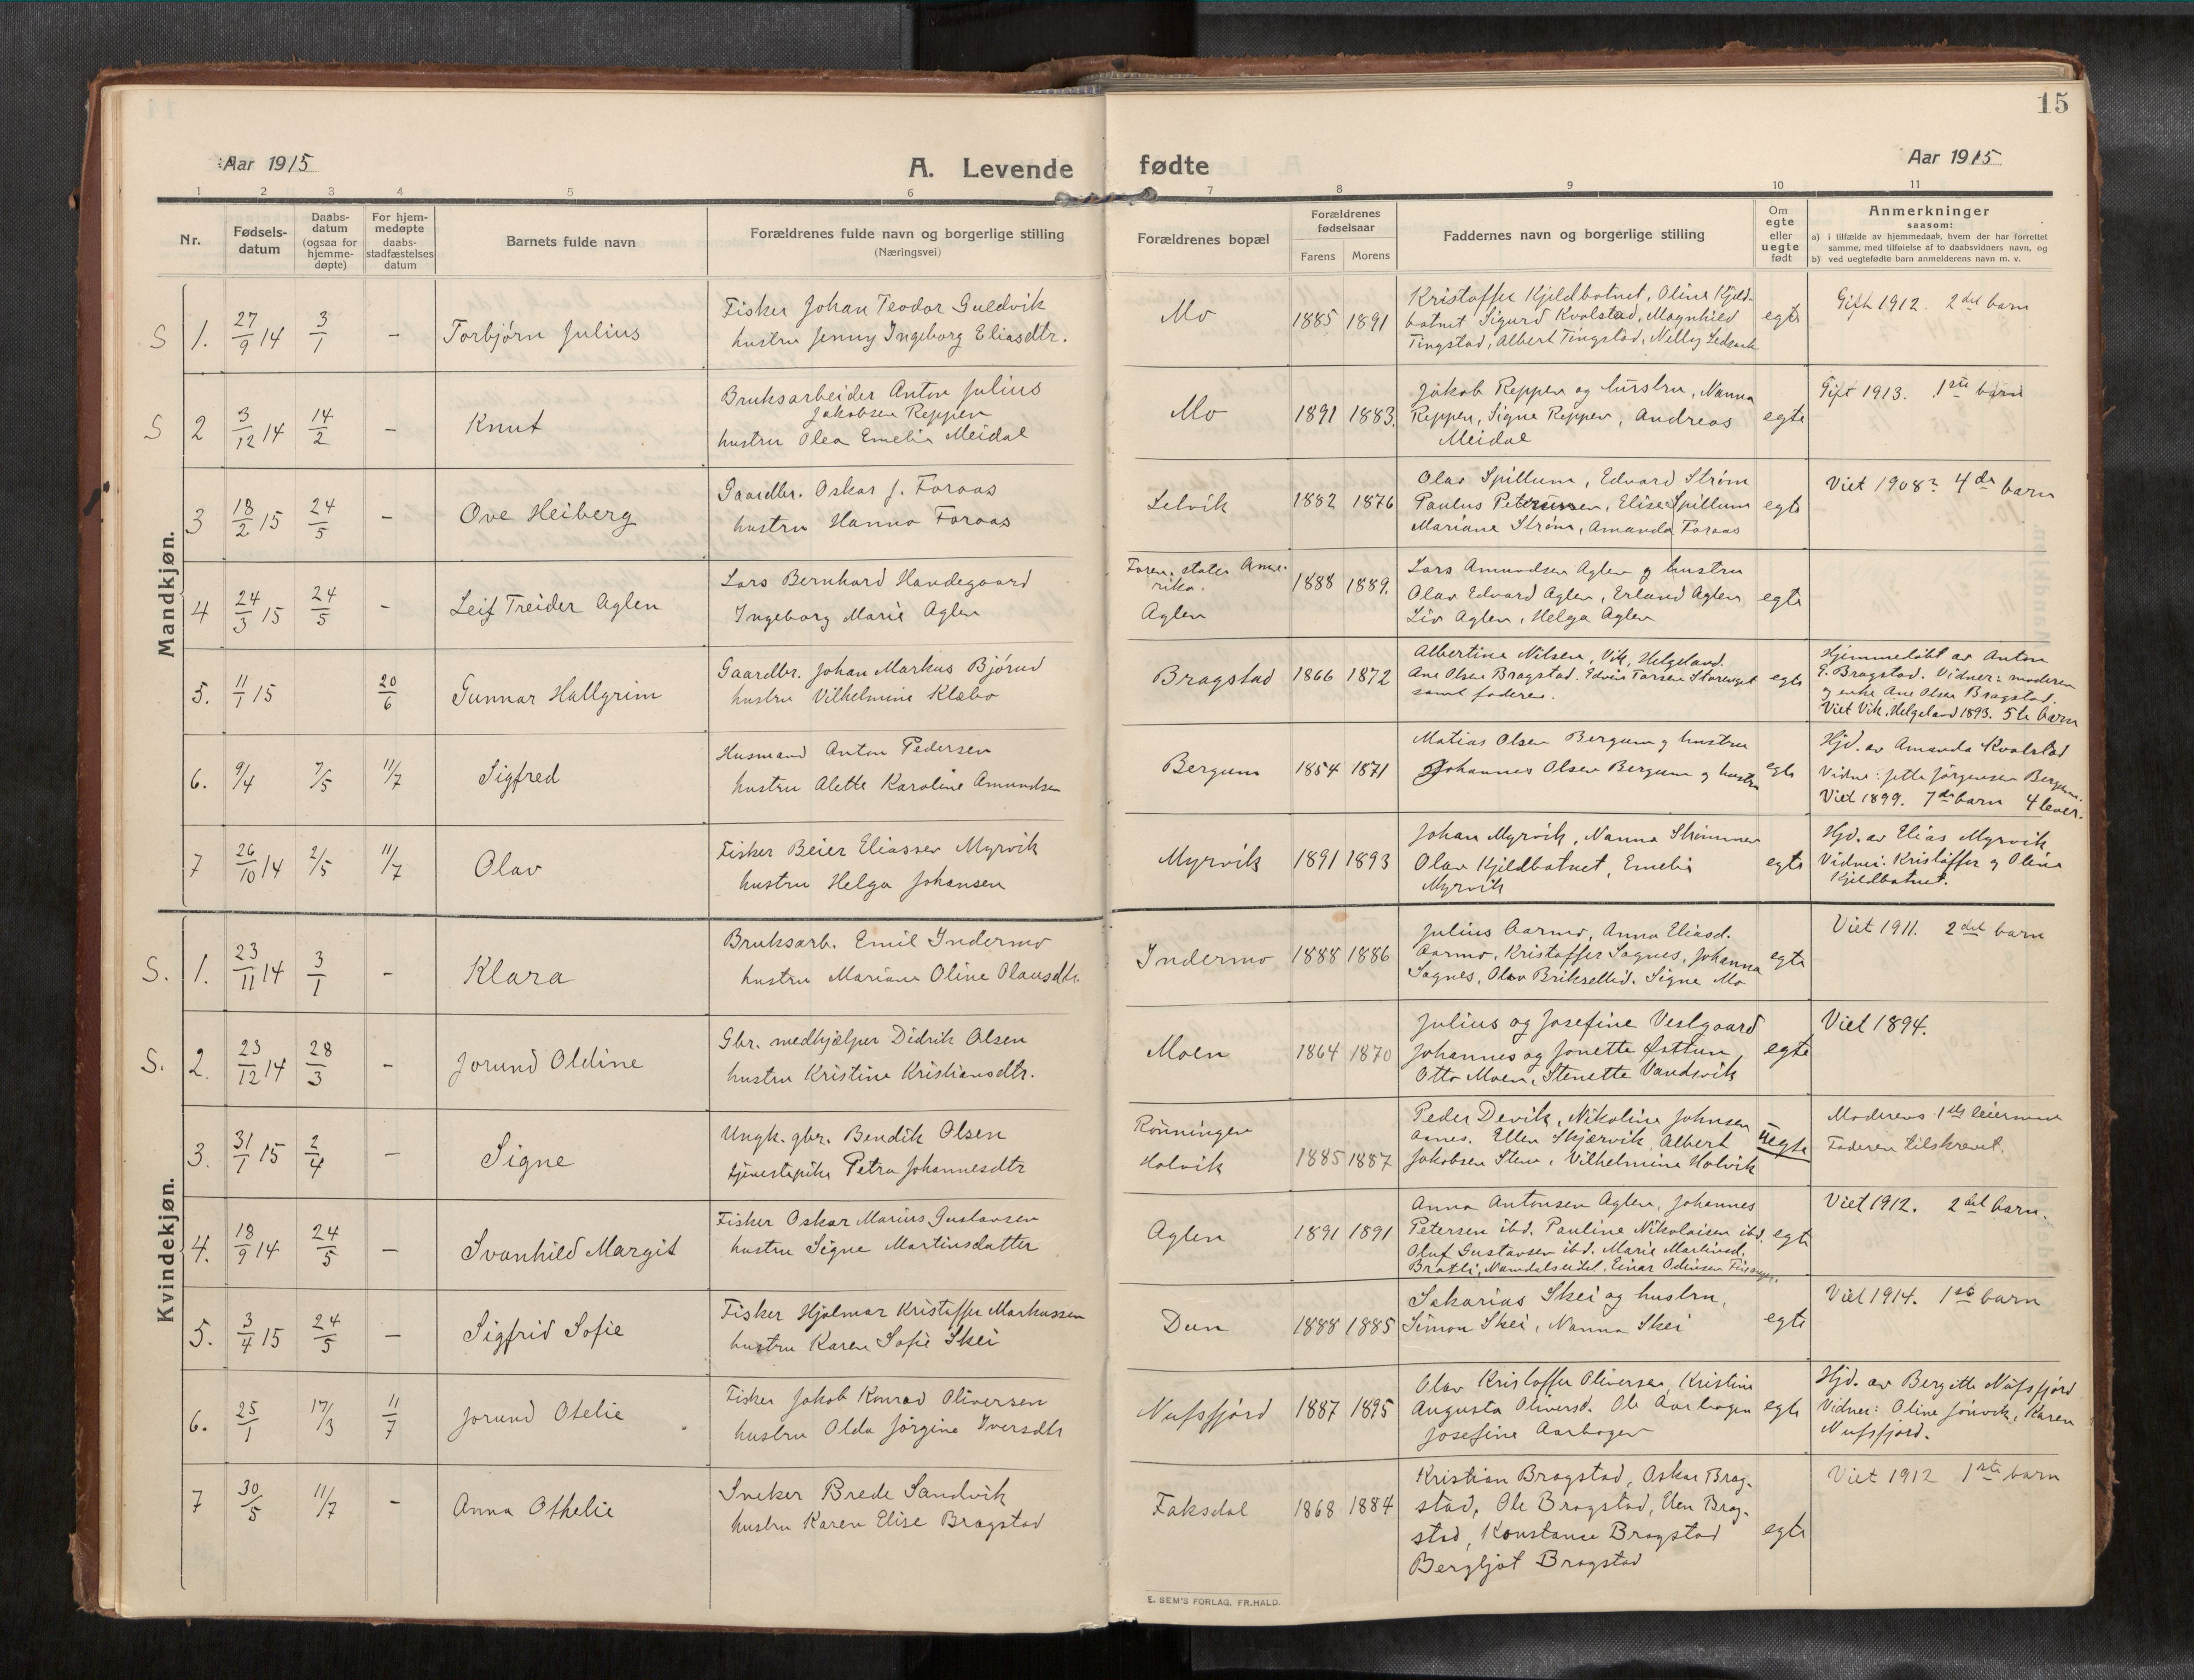 15
Aar 1915
A. Levende fødte
Aar 1915
1 2 3 4 5 6 7 8 9 10 11
Nr.
Fødsels-
datum
Daabs-
datum
(ogsaa for
hjemme-
døpte)
For hjem-
medøpte
daabs-
stadfæstelses
datum
Barnets fulde navn
Forældrenes fulde navn og borgerlige stilling
(Næringsvei)
Forældrenes bopæl
Forældrenes
fødselsaar
Farens Morens
Faddernes navn og borgerlige stilling
Om
egte
eller
uegte
født
Anmerkninger
saasom:
a) i tilfælde av hjemmedaab, hvem der har forrettet
samme, med tilføielse af to daabsvidners navn, og
b) ved uegtefødte barn anmelderens navn m. v.
Mandkjøn.
S 1. 27/9 14 3/1 - Torbjørn Julius
Fisker Johan Teodor Guldvik
hustru Jenny Ingeborg Eliasdtr.
Mo 1885 1891
Kristoffer Kjeldbotnet, Oline Kjeld-
botnet Sigurd Kvalstad, Magnhild
Tingstad, Albert Tingstad, Nelly
egte
Gift 1912. 2det barn
S 2 3/12 14 14/2 - Knut
Bruksarbeider Anton Julius
Jakobsen Reppen
hustru Olea Emelie Meidal
Mo 1891 1883.
Jakob Reppen og hustru, Nanna
Reppen, Signe Reppen, Andreas
Meidal
egte
Gift 1913. 1ste barn
3 18/2 15 24/5 - Ove Heiberg
Gaardbr. Oskar J. Foraas
hustru Hanna Foraas
Selvik 1882 1876
Olav Spillum, Edvard Strøm
Paulus Petersen, Elise Spillum
Mariane Strøm, Amanda Foraas
egte
Viet 1908? 4de barn
4 24/3 15 24/5 - Leif Treider Aglen
Lars Bernhard Handegaard
Ingeborg Marie Aglen
Foren. stater Ame-
rika.
Aglen
1888 1889.
Lars Amundsen Aglen og hustru
Olav Edvard Aglen, Erland Aglen
Liv Aglen, Helga Aglen
egte
5. 11/1 15 20/6 Gunnar Hallgrim
Gaardbr. Johan Markus Bjørud
hustru Vilhelmine Klæbo
Bragstad 1866 1872
Albertine Nilsen, Vik, Helgeland.
Ane Olsen Bragstad. Edvin Torsen
samt faderen.
egte
Hjemmedøbt av Anton
G. Bragstad. Vidner: moderen
og enke Ane Olsen Bragstad.
Viet Vik, Helgeland 1893. 5te barn
6. 9/4 7/5 11/7 Sigfred
Husmand Anton Pedersen
hustru Alette Karoline Amundsen
Bergum 1854 1871
Matias Olsen Bergum og hustru
Johannes Olsen Bergum og hustru
egte
Hjd. av Amanda Kvalstad
Vidne: Jette Jørgensen Bergum.
Viet 1899. 7de barn 4 lever.
7 26/10 14 2/5 11/7 Olav
Fisker Beier Eliassen Myrvik
hustru Helga Johansen
Myrvik 1891 1893
Johan Myrvik, Nanna Strømmen
Olav Kjeldbotnet, Emelie
Myrvik
egte
Hjd. av Elias Myrvik
Vidner: Kristoffer og Oline
Kjeldbotnet.
Kvindekjøn.
S. 1. 23/11 14 3/1 - Klara
Bruksarb. Emil Indermo
hustru Mariane Oline Olausdtr.
Indermo 1888 1886
Julius Aarmo, Anna Eliasd.
Aarmo, Kristoffer Sagnes, Johanna
Sagnes, Olav Brikselid. Signe Mo
egte
Viet 1911. 2det barn
S. 2. 23/12 14 28/3 - Jorund Oldine
Gbr. medhjælper Didrik Olsen
hustru Kristine Kristiansdtr.
Moen 1864 1870
Julius og Josefine Vestgaard
Johannes og Jonette Østtun
Otto Moen, Stenette Vandsvik
egte
Viet 1894.
3. 31/1 15 2/4 - Signe
Ungk. gbr. Bendik Olsen
tjenestepike Petra Johannesdtr
Rønningen
Holvik
1885 1887
Peder Devik, Nikoline Johnsen
Aanes. Ellen Skjærvik, Albert
Jakobsen Sten, Vilhelmine Holvik
uegte
Moderens 1ste leiermaal
Faderen tilskrevet.
4. 18/9 14 24/5 - Svanhild Margit
Fisker Oskar Marius Gustavsen
hustru Signe Martinsdatter
Aglen 1891 1891
Anna Antonsen Aglen, Johannes
Petersen ibd. Pauline Nikolaisen ibd.
Oluf Gustavsen ibd. Marie Martinsd.
Bratli, Namdalseidet. Einar Odinsen
egte
Viet 1912. 2det barn.
5. 3/4 15 24/5 - Sigfrid Sofie
Fisker Hjalmar Kristoffer Markussen
hustru Karen Sofie Skei
Dun 1888 1885
Sakarias Skei og hustru,
Simon Skei, Nanna Skei
egte
Viet 1914. 1ste barn
6. 25/1 17/3 11/7 Jorund Otelie
Fisker Jakob Konrad Oliversen
hustru Olda Jørgine Iversdtr
Nufsfjord 1887 1895
Olav Kristoffer Oliversen, Kristine
Augusta Oliversd. Ole Aarhagen
Josefine Aarhagen
egte
Hjd. av Bergitte Nufsfjord
Vidner: Oline Jønvik, Karen
Nufsfjord.
7 30/5 11/7 - Anna Othelie
Sneker Brede Sandvik
hustru Karen Elise Bragstad
Faksdal 1868 1884
Kristian Bragstad, Oskar Brag-
stad, Ole Bragstad, Elen Brag-
stad, Konstanse Bragstad
Bergljot Bragstad
egte
Viet 1912 1ste barn
E. SEM'S FORLAG, FR.HALD.